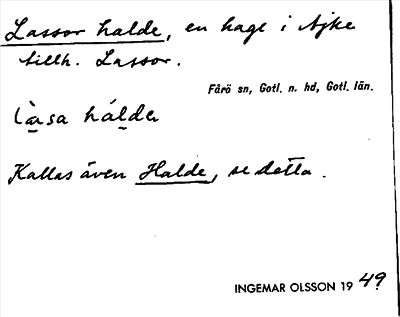 Lassor halde, en hage i Ajke
tillh. Lassor.
Fårö sn, Gotl. n. hd, Gotl. län.
hálde
Kallas även Halde, se detta.
INGEMAR OLSSON 1949